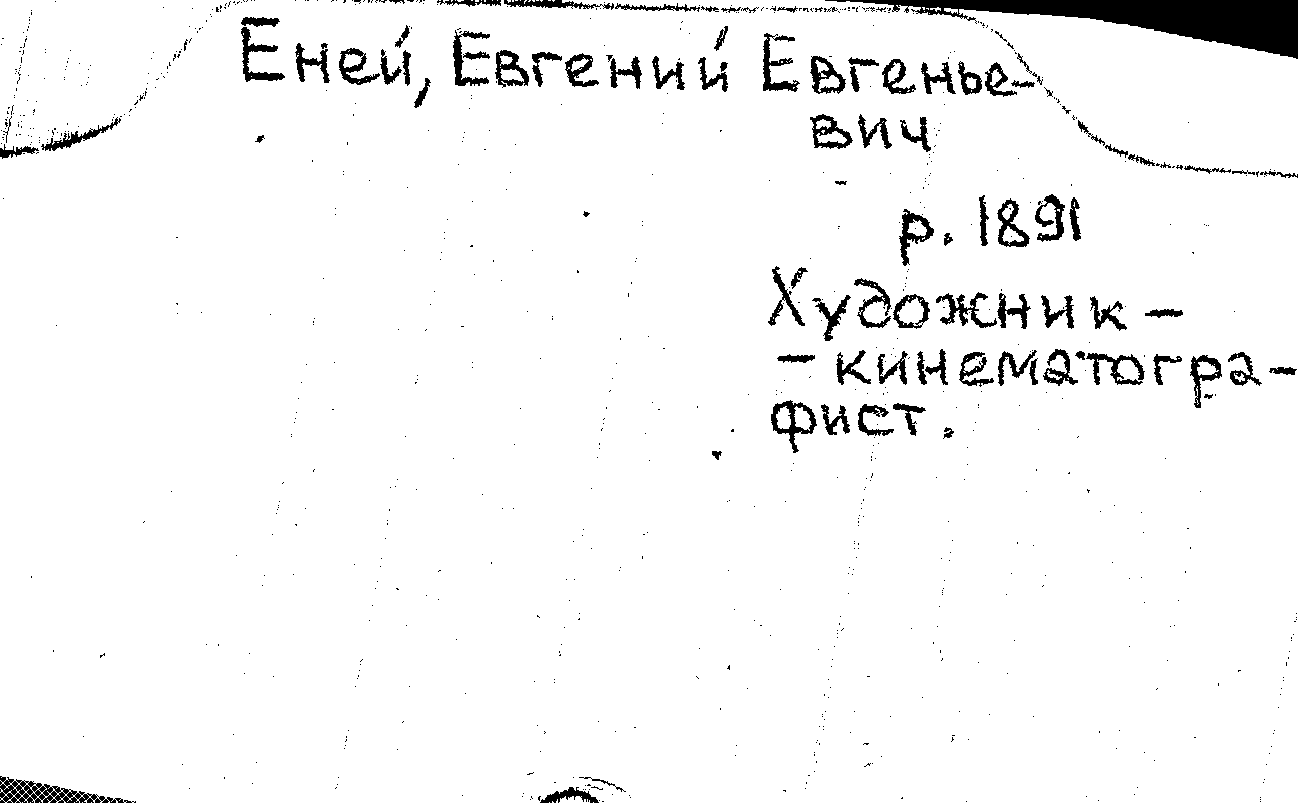 Еней, Евгений Евгенье-
вич
р. 1891
Художник -
- кинематогра-
фист.